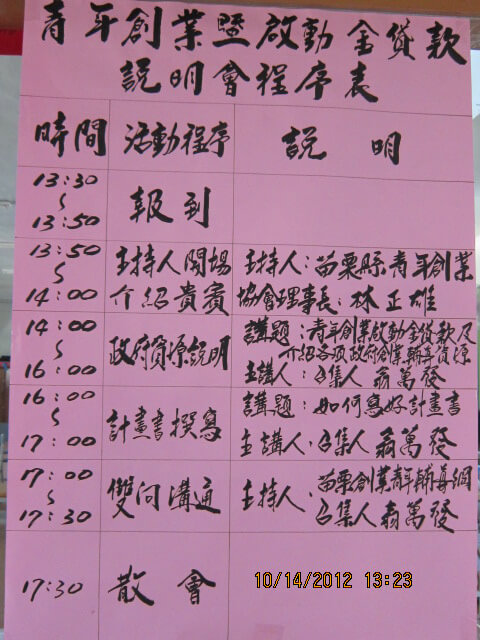 青年創業暨啟動金貸款
說明會程序表
時間 活動程序 說 明
13:30
~
13:50
報到
13:50
~
14:00
主持人開場
介紹貴賓
主持人:苗栗縣青年創業
協會理事長:林正雄
14:00
~
16:00
政府資源說明
講題:青年創業啟動金貸款及
介紹各項政府創業輔導資源
主講人:召集人 翁萬發
16:00
~
17:00
計畫書撰寫
講題:如何寫好計畫書
主講人:召集人 翁萬發
17:00
~
17:30
雙向溝通
主持人:苗栗創業青年輔導網
召集人翁萬發
17:30
散會
10/14/2012 13:23